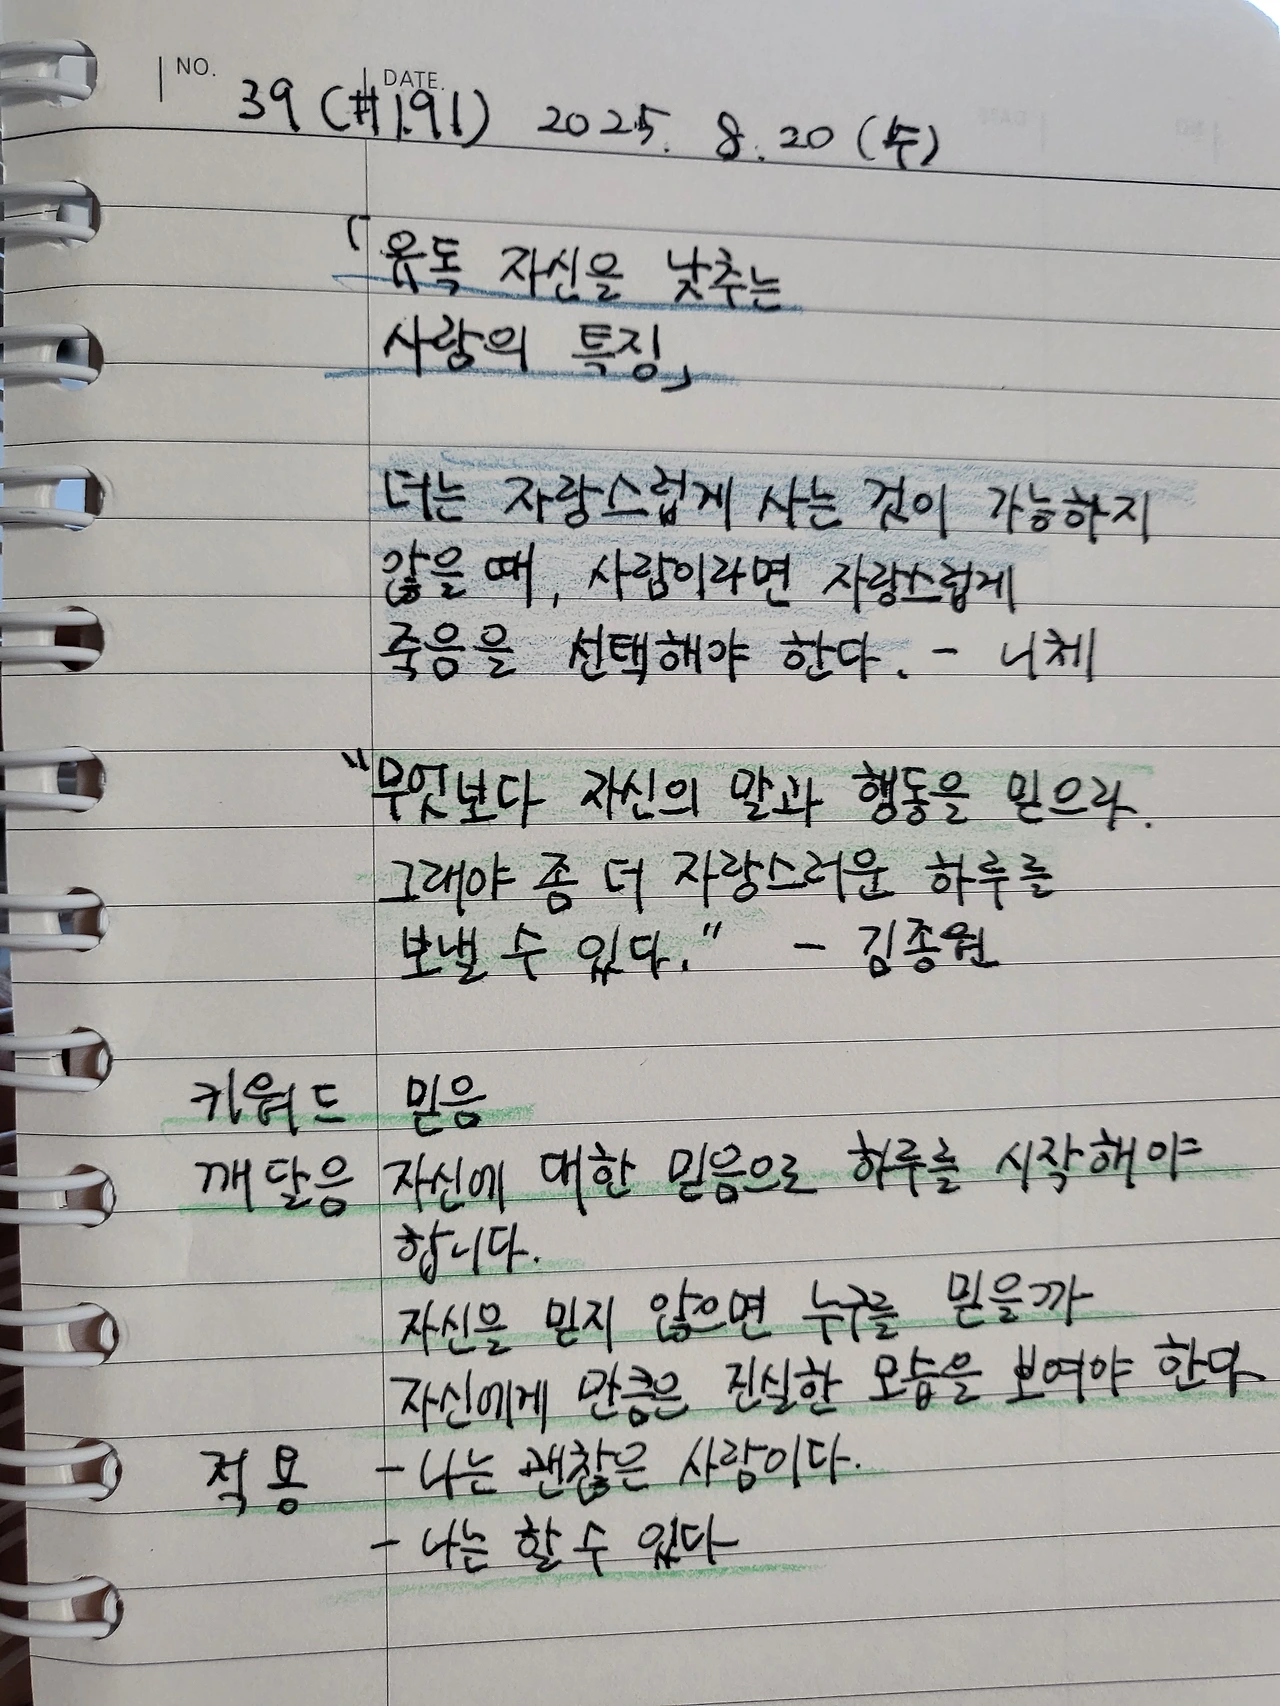 NO. 39 (#191) DATE. 2025. 8. 20 (수)
「유독 자신을 낮추는
사람의 특징」
더는 자랑스럽게 사는 것이 가능하지
않을 때, 사람이라면 자랑스럽게
죽음을 선택해야 한다. - 니체
"무엇보다 자신의 말과 행동을 믿으라.
그래야 좀 더 자랑스러운 하루를
보낼 수 있다." - 김종원
키워드 믿음
깨달음 자신에 대한 믿음으로 하루를 시작해야
합니다.
자신을 믿지 않으면 누구를 믿을까
자신에게 만큼은 진실한 모습을 보여야 한다
적용 - 나는 괜찮은 사람이다.
- 나는 할 수 있다